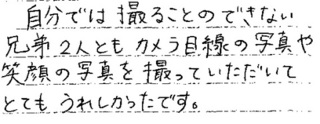 自分では撮ることのできない
兄弟2人とも カメラ目線の写真や
笑顔の写真を撮っていただいて
とてもうれしかったです。